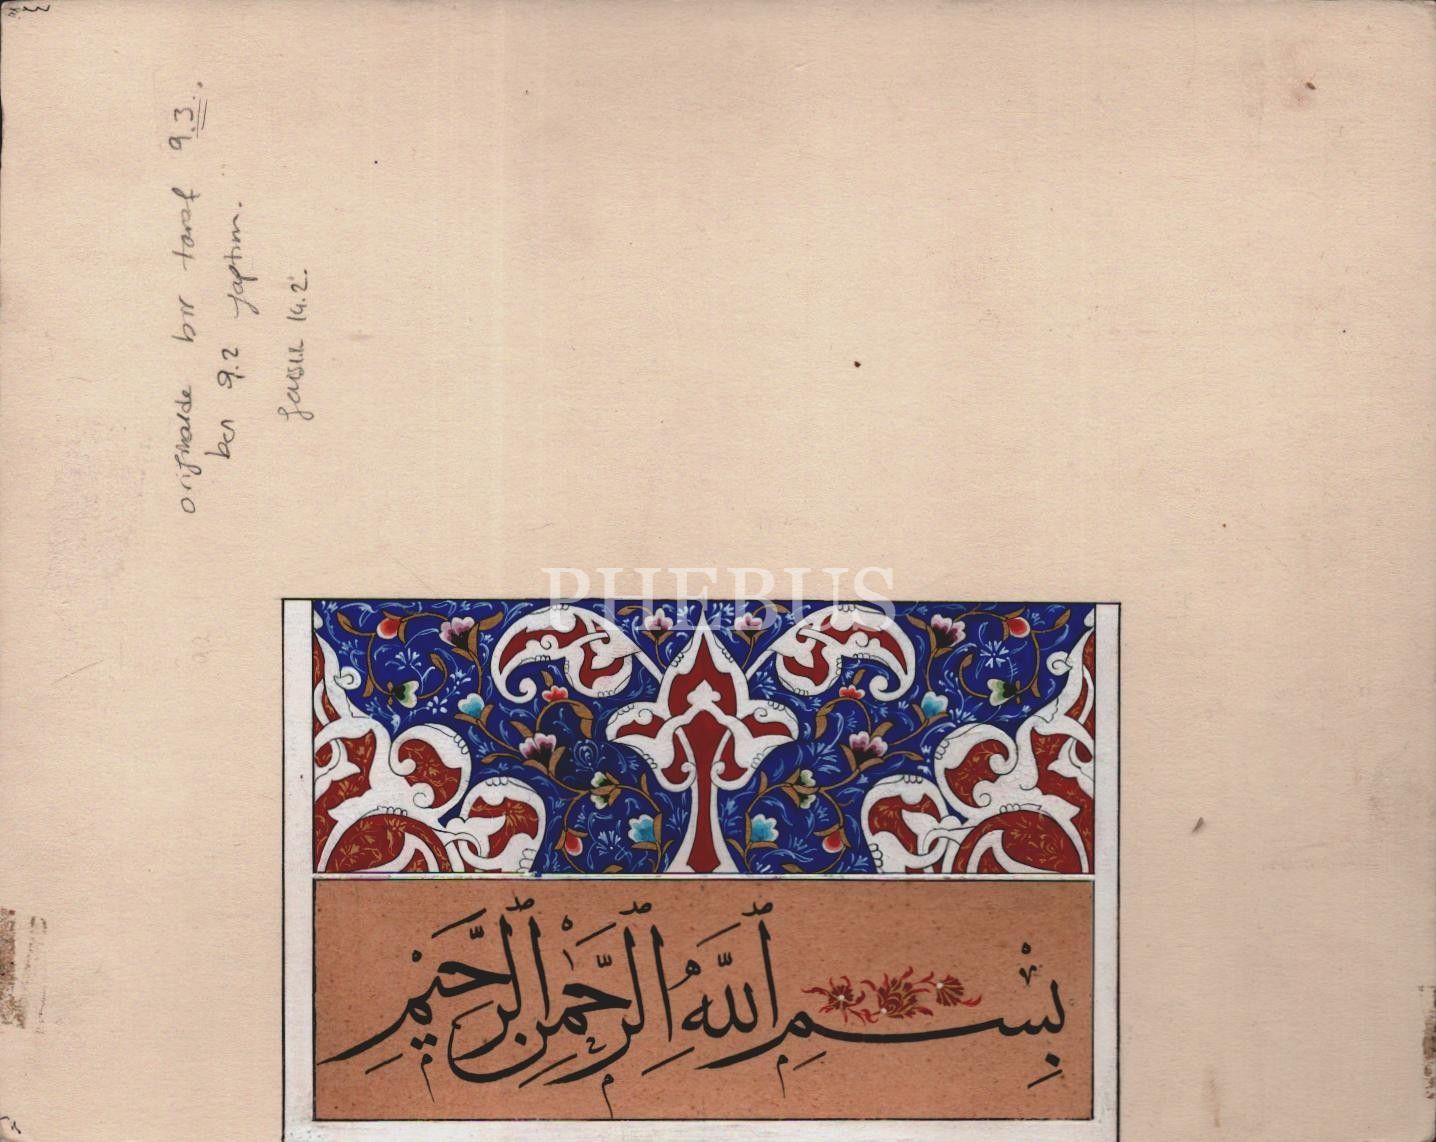 orijinalde bir taraf 9.3.
ben 9.2 yaptım.
14.2.
PHEBUS
بِسْمِ ٱللَّهِ ٱلرَّحْمٰنِ ٱلرَّحِيمِ